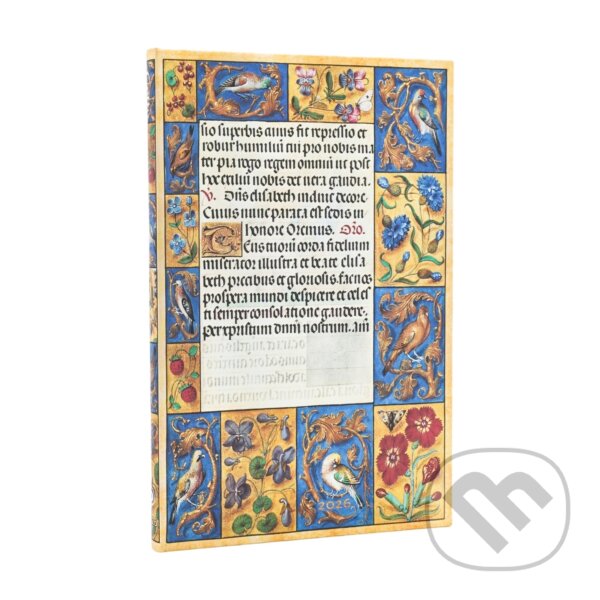 sio superbis cuius fit repressio et
robur humiliũ cui pro nobis ma
ter pia rogo regem omniũ ut post
hoc exiliũ nobis det uera gaudia.
V. elisabeth decore.
Cuius nunc parata est sedis in
honore Oremus. Orõ.
Eus tuorũ corda fidelium
miserator illustra et beate elisa
beth precibus et gloriosis. fac nos
prospera mundi despicere et celes
ti semper consolatione gaudere.
per xpristum dñm nostrum. am
2026